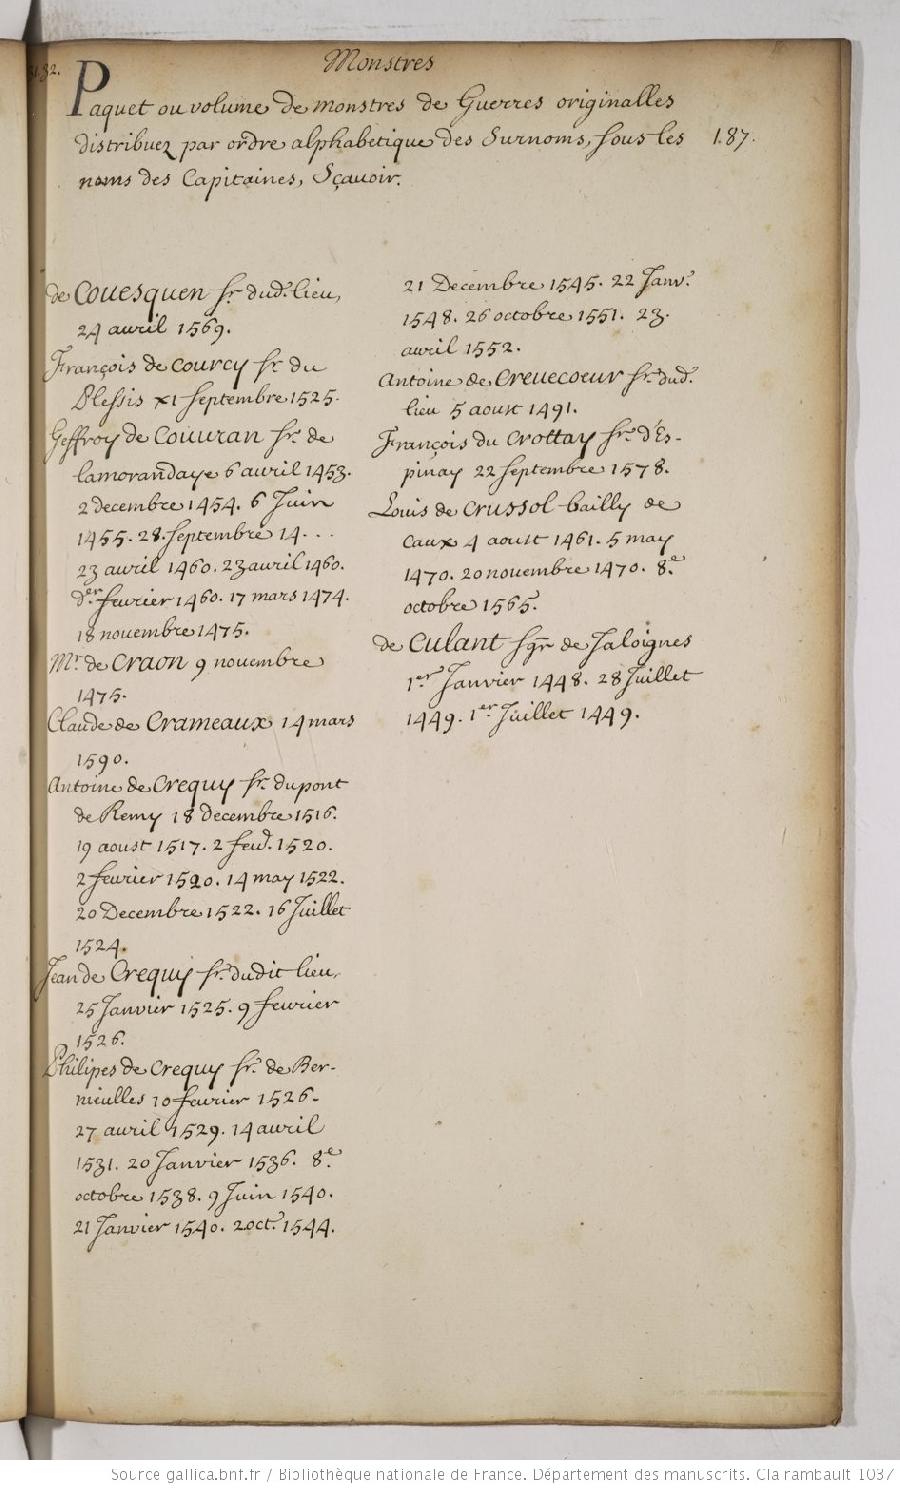 Monstres
Paquet ou volume de monstres de Guerres originalles
distribuez par ordre alphabetique des Surnoms, sous les
187.
noms des Capitaines, Sçavoir.
de Couesquen sr. dud. lieu,
24 avril 1569.
François de Courcy sr. du
Plessis x1 septembre 1525.
Geffroy de Couuran sr. de
lamorandaye 6 auril 1453.
2 decembre 1454. 6 Juin
1455. 28. septembre 14...
23 auril 1460. 23 auril 1460.
der. feurier 1460. 17 mars 1474.
18 nouembre 1475.
Mr. de Craon 9 nouembre
1475.
Claude de Crameaux 14 mars
1590.
Antoine de Crequy sr. du pont
de Remy 18 decembre 1516.
19 aoust 1517. 2 feur. 1520.
2 feurier 1520. 14 may 1522.
20 Decembre 1522. 16 Juillet
1524.
Jean de Crequy sr. dudit lieu,
25 Janvier 1525. 9 feurier
1526.
Philipes de Crequy sr. de Ber-
nieulles 10 feurier 1526.
27 auril 1529. 14 auril
1531. 20 Janvier 1536. 8e.
octobre 1538. 9 Juin 1540.
21 Janvier 1540. 2 oct. 1544.
21 Decembre 1545. 22 Janv.
1548. 26 octobre 1551. 23.
auril 1552.
Antoine de Creuecoeur sr. dud.
lieu 5 aoust 1491.
François du Crottay sr. d'Es-
pinay 22 septembre 1578.
Louis de Crussol bailly de
Caux 4 aoust 1461. 5 may
1470. 20 nouembre 1470. 8e.
octobre 1565.
de Culant sgr de Jaloignes
1er. Janvier 1448. 28 Juillet
1449. 1er. Juillet 1449.
Source gallica.bnf.fr / Bibliothèque nationale de France. Département des manuscrits. Clairambault 1037